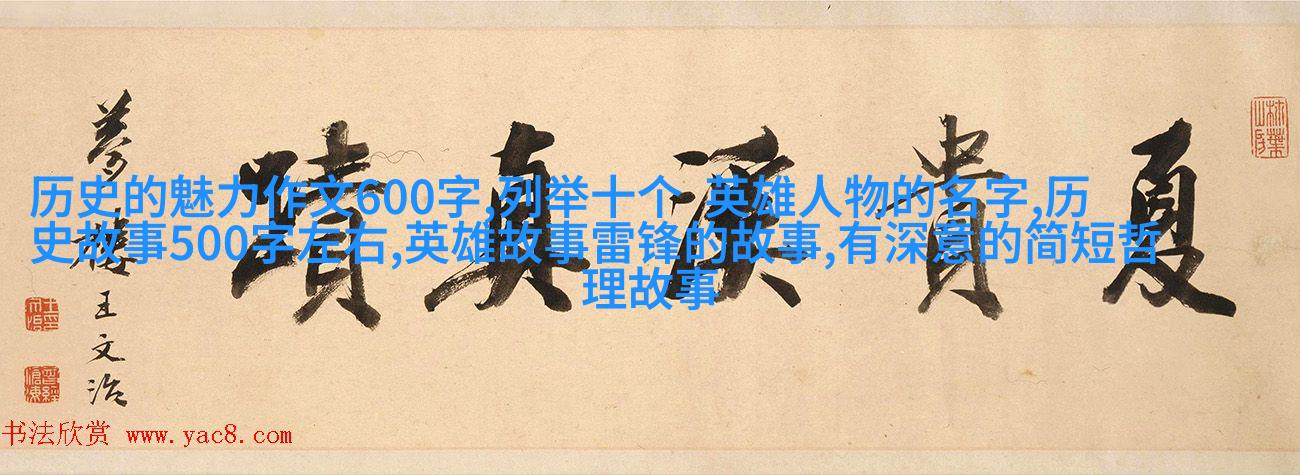 历史的魅力作文600字,列举十个 英雄人物的名字,历
史故事500字左右,英雄故事雷锋的故事,有深意的简短哲
理故事
夏貴溪真蹟
夢樓王文治
曾經滄海
书法欣赏 www.yac8.com